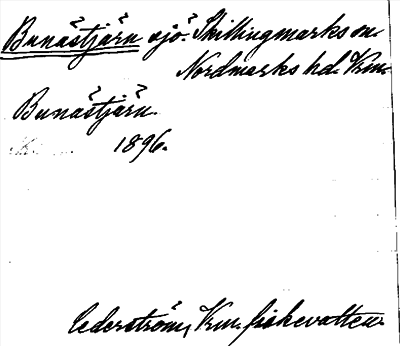 Bunåstjärn sjö. Skillingmarks sn.
Nordmarks hd. Vrm.
Bunåstjärn.
1896.
Cederström, Vrm. fiskevatten.